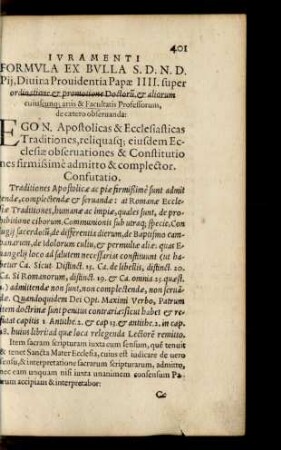 401
IVRAMENTI
FORMVLA EX BVLLA S. D. N. D.
Pij, Diuina Prouidentia Papæ IIII. super
ordinatione & promotione Doctorũ, & aliorum
cuiuscunq; artis & Facultatis Professorum,
de cætero obseruanda:
EGO N. Apostolicas & Ecclesiasticas
Traditiones, reliquasq; eiusdem Ec-
clesiæ obseruationes & Constitutio
nes firmissimè admitto & complector.
Confutatio.
Traditiones Apostolicæ ac piæ firmissimè sunt admit
tendæ, complectendæ & seruandæ: at Romanæ Eccle
siæ Traditiones, humanæ ac impiæ, quales sunt, de pro-
hibitione ciborum. Communionis sub utraq; specie. Con
iugij sacerdotũ, de differentijs dierum, de Baptismo cam
panarum, de idolorum cultu, & permultæ aliæ: quas Eu
angelij loco ad salutem necessarias constituunt (ut ha-
betur Ca. Sicut. Distinct. 15. Ca. de libellis, distinct. 20.
Ca. Si Romanorum, distinct. 19. & Ca. omnia 25. quæst.
1.) admittendæ non sunt, non complectendæ, non serua-
dæ. Quandoquidem Dei Opt. Maximi Verbo, Patrum
item doctrinæ sunt penitus contrariæ: sicut habet & re-
futat capitis 1. Antithe. 2. & cap 13. & antithe. 2. in cap.
18. huius libri: ad quæ loca relegenda Lectorē remitto.
Item sacram scripturam iuxta eum sensum, què tenuit
& tenet Sancta Mater Ecclesia, cuius est iudicare de uero
sensu, & interpretatione sacrarum scripturarum, admitto,
nec eam unquam nisi iuxta unanimem consensum Pa
trum accipiam & interpretabor:
Cc